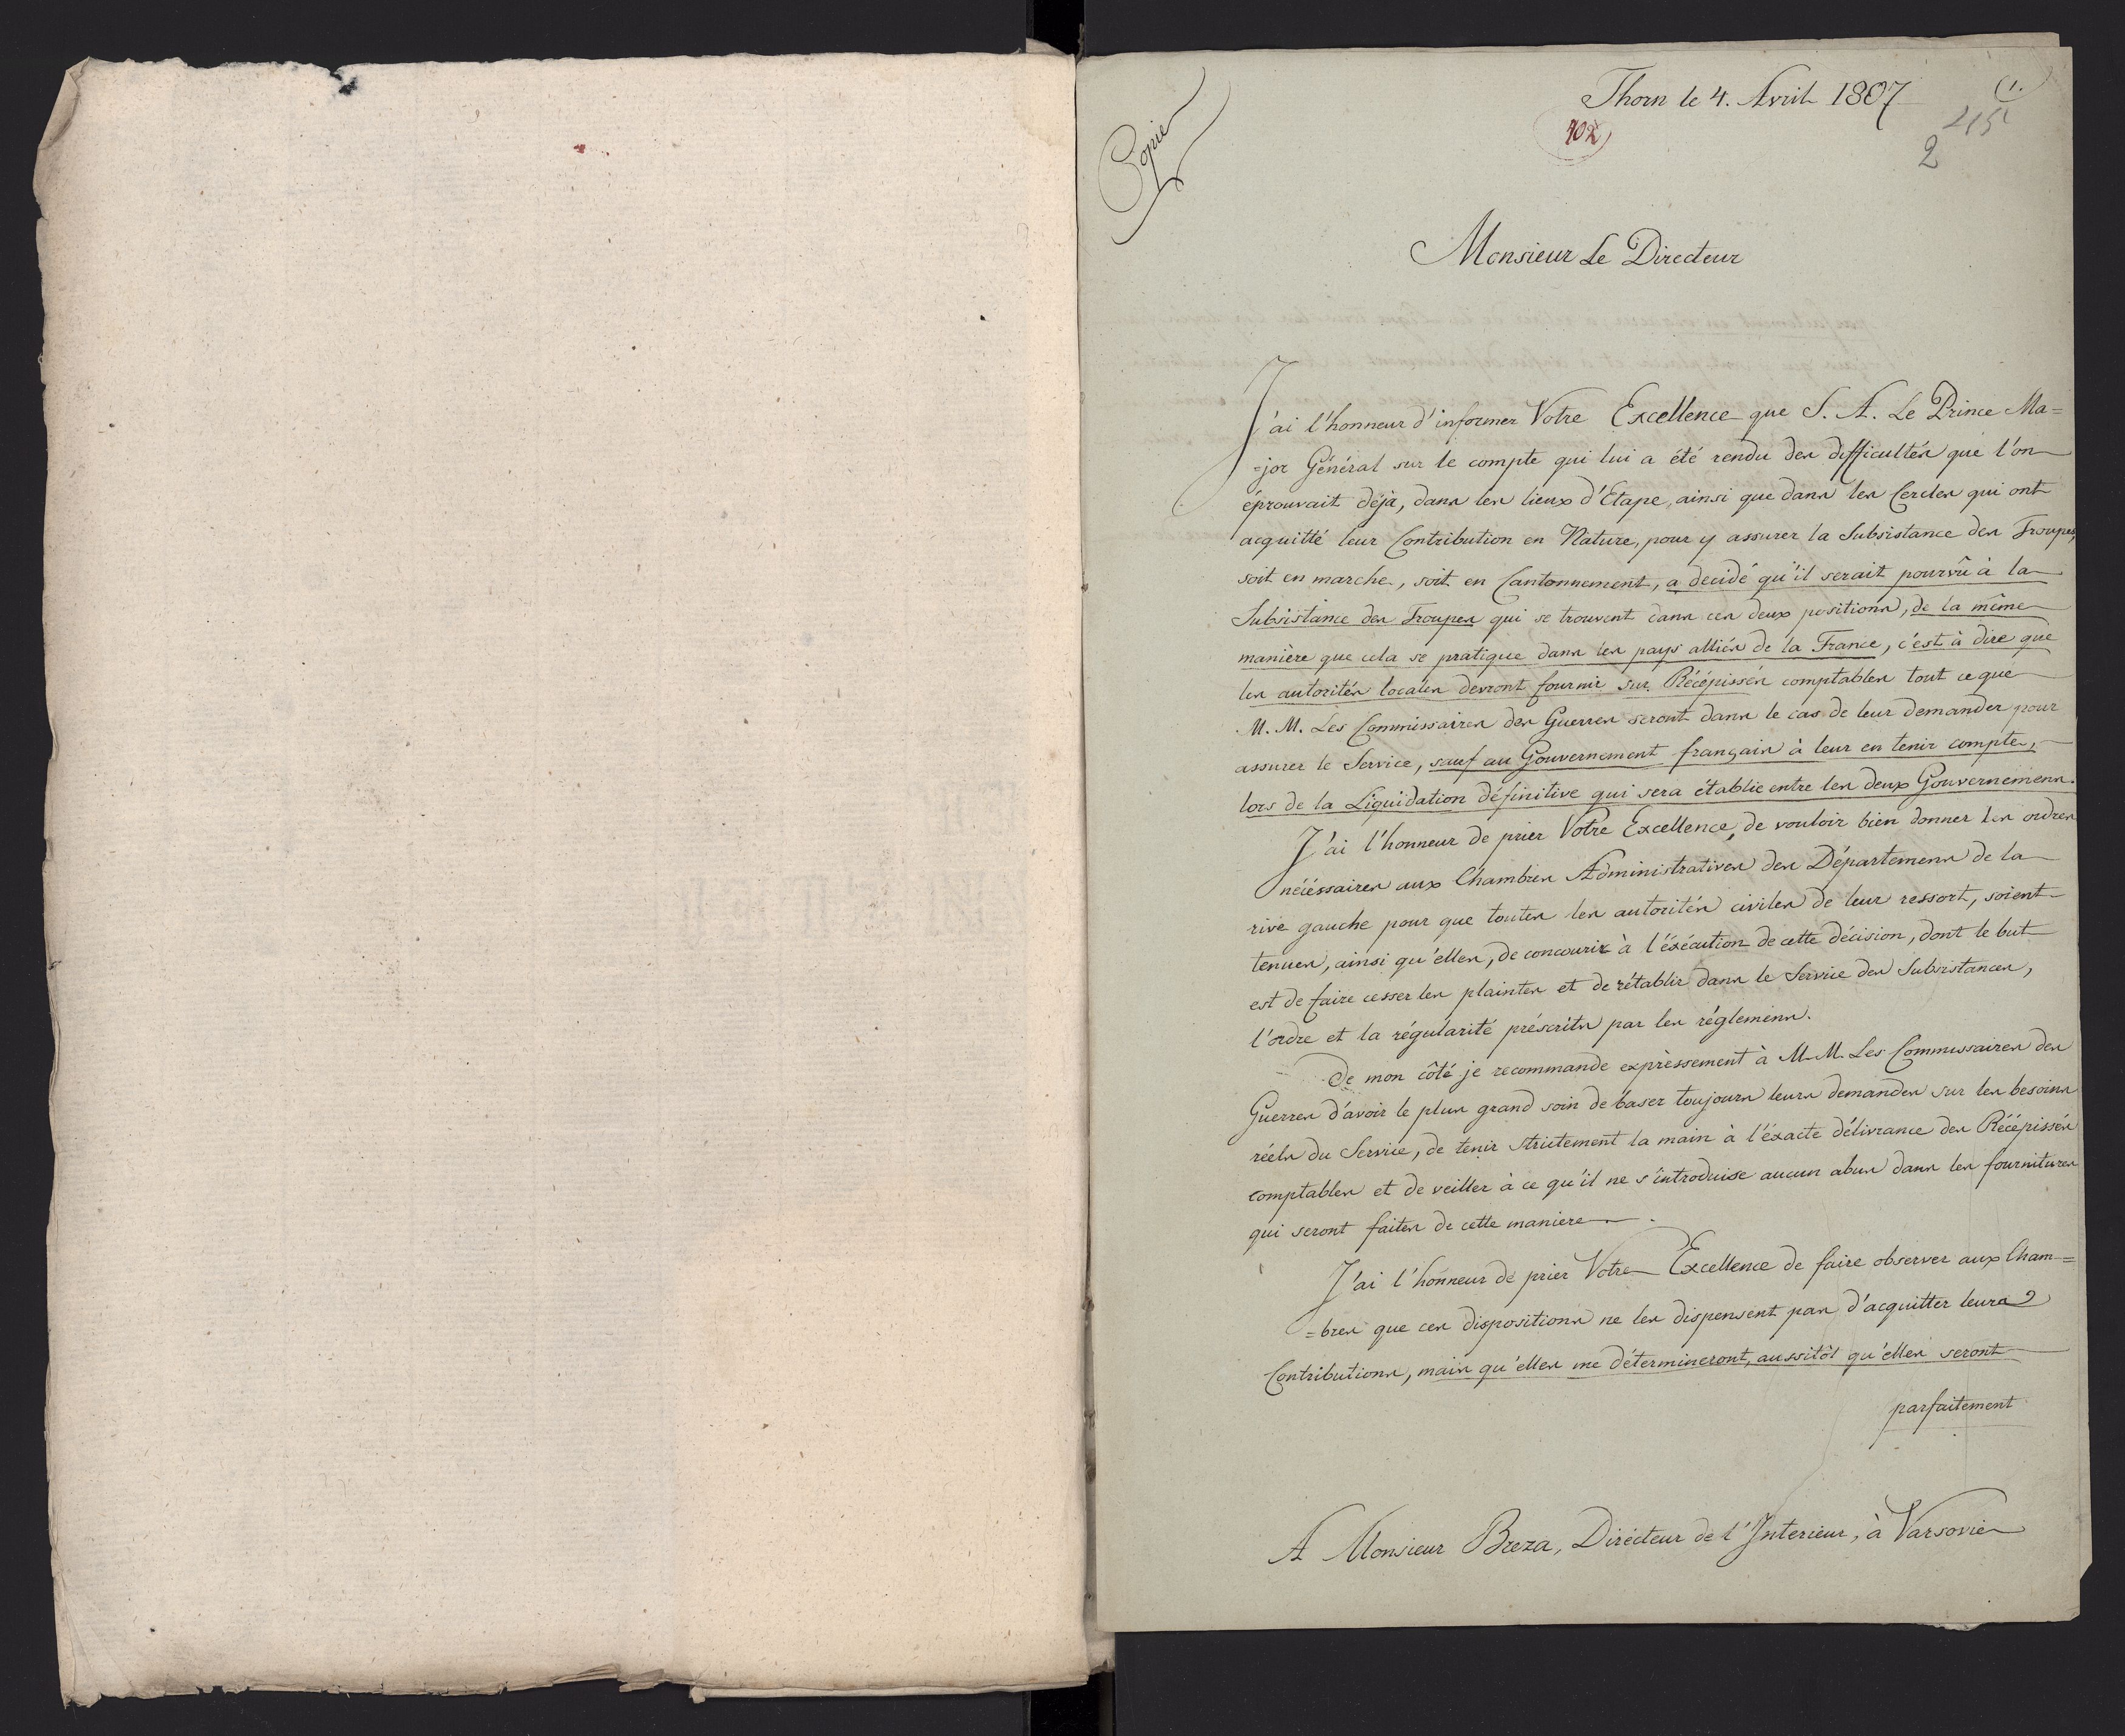 Copie
Thorn le 4. Avril 1807
(1.
402
215
2
Monsieur Le Directeur
J'ai l'honneur d'informer Votre Excellence que S. A. Le Prince Ma=
=jor Général sur le compte qui lui a été rendu des difficultés que l'on
éprouvait déja, dans les lieux d'Etape, ainsi que dans les Cercles qui ont
acquitté leur Contribution en Nature, pour y assurer la Subsistance des Troupes,
soit en marche, soit en Cantonnement, a decidé qu'il serait pourvû à la
Subsistance des Troupes qui se trouvent dans ces deux positions, de la même
manière que cela se pratique dans les pays alliés de la France, c'est à dire que
les autorités locales devront fournir sur Récépissés comptables tout ce que
M. M. Les Commissaires des Guerres seront dans le cas de leur demander pour
assurer le Service, sauf au Gouvernement français à leur en tenir compte,
lors de la Liquidation définitive qui sera établie entre les deux Gouvernemens.
J'ai l'honneur de prier Votre Excellence, de vouloir bien donner les ordres
nécéssaires aux Chambres Administratives des Départemens de la
rive gauche pour que toutes les autorités civiles de leur ressort, soient
tenues, ainsi qu'elles, de concourir à l'éxécution de cette décision, dont le but
est de faire cesser les plaintes et de rétablir dans le Service des Subsistances,
l'ordre et la régularité préscrits par les réglemens.
De mon côté je recommande expressement à M. M. Les Commissaires des
Guerres d'avoir le plus grand soin de baser toujours leurs demandes sur les besoins
réels du Service, de tenir strictement la main à l'éxacte délivrance des Récépissés
comptables et de veiller à ce qu'il ne s'introduise aucun abus dans les fournitures
qui seront faites de cette maniere.
J'ai l'honneur de prier Votre Excellence de faire observer aux Cham=
=bres que ces dispositions ne les dispensent pas d'acquitter leurs
Contributions, mais qu'elles me détermineront, aussitôt qu'elles seront
parfaitement
A Monsieur Breza, Directeur de l'Interieur, à Varsovie